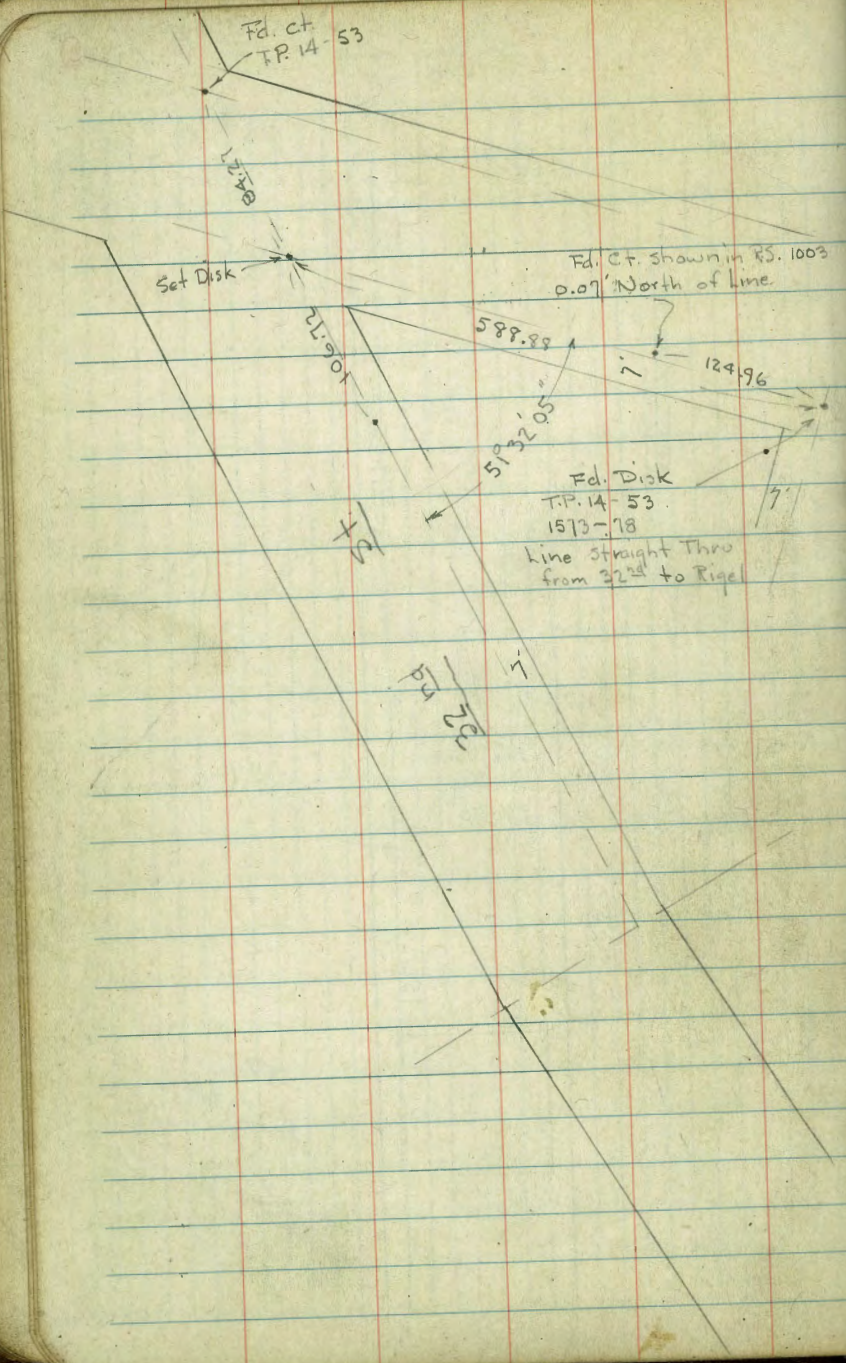 Fd. Ct.
T.P. 14-53
84.27
Set Disk
106.72
Fd. Ct. Shown in R.S. 1003
0.07' North of Line
588.88
7'
124.96
51° 32' 05"
Fd. Disk
T.P. 14-53
1573-78
Line Straight Thru
from 32nd to Rigel
7'
32nd St
7'